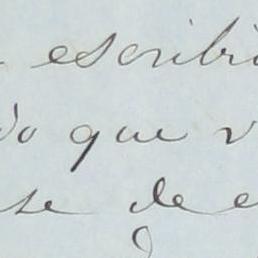 escribi
do que v
se de e